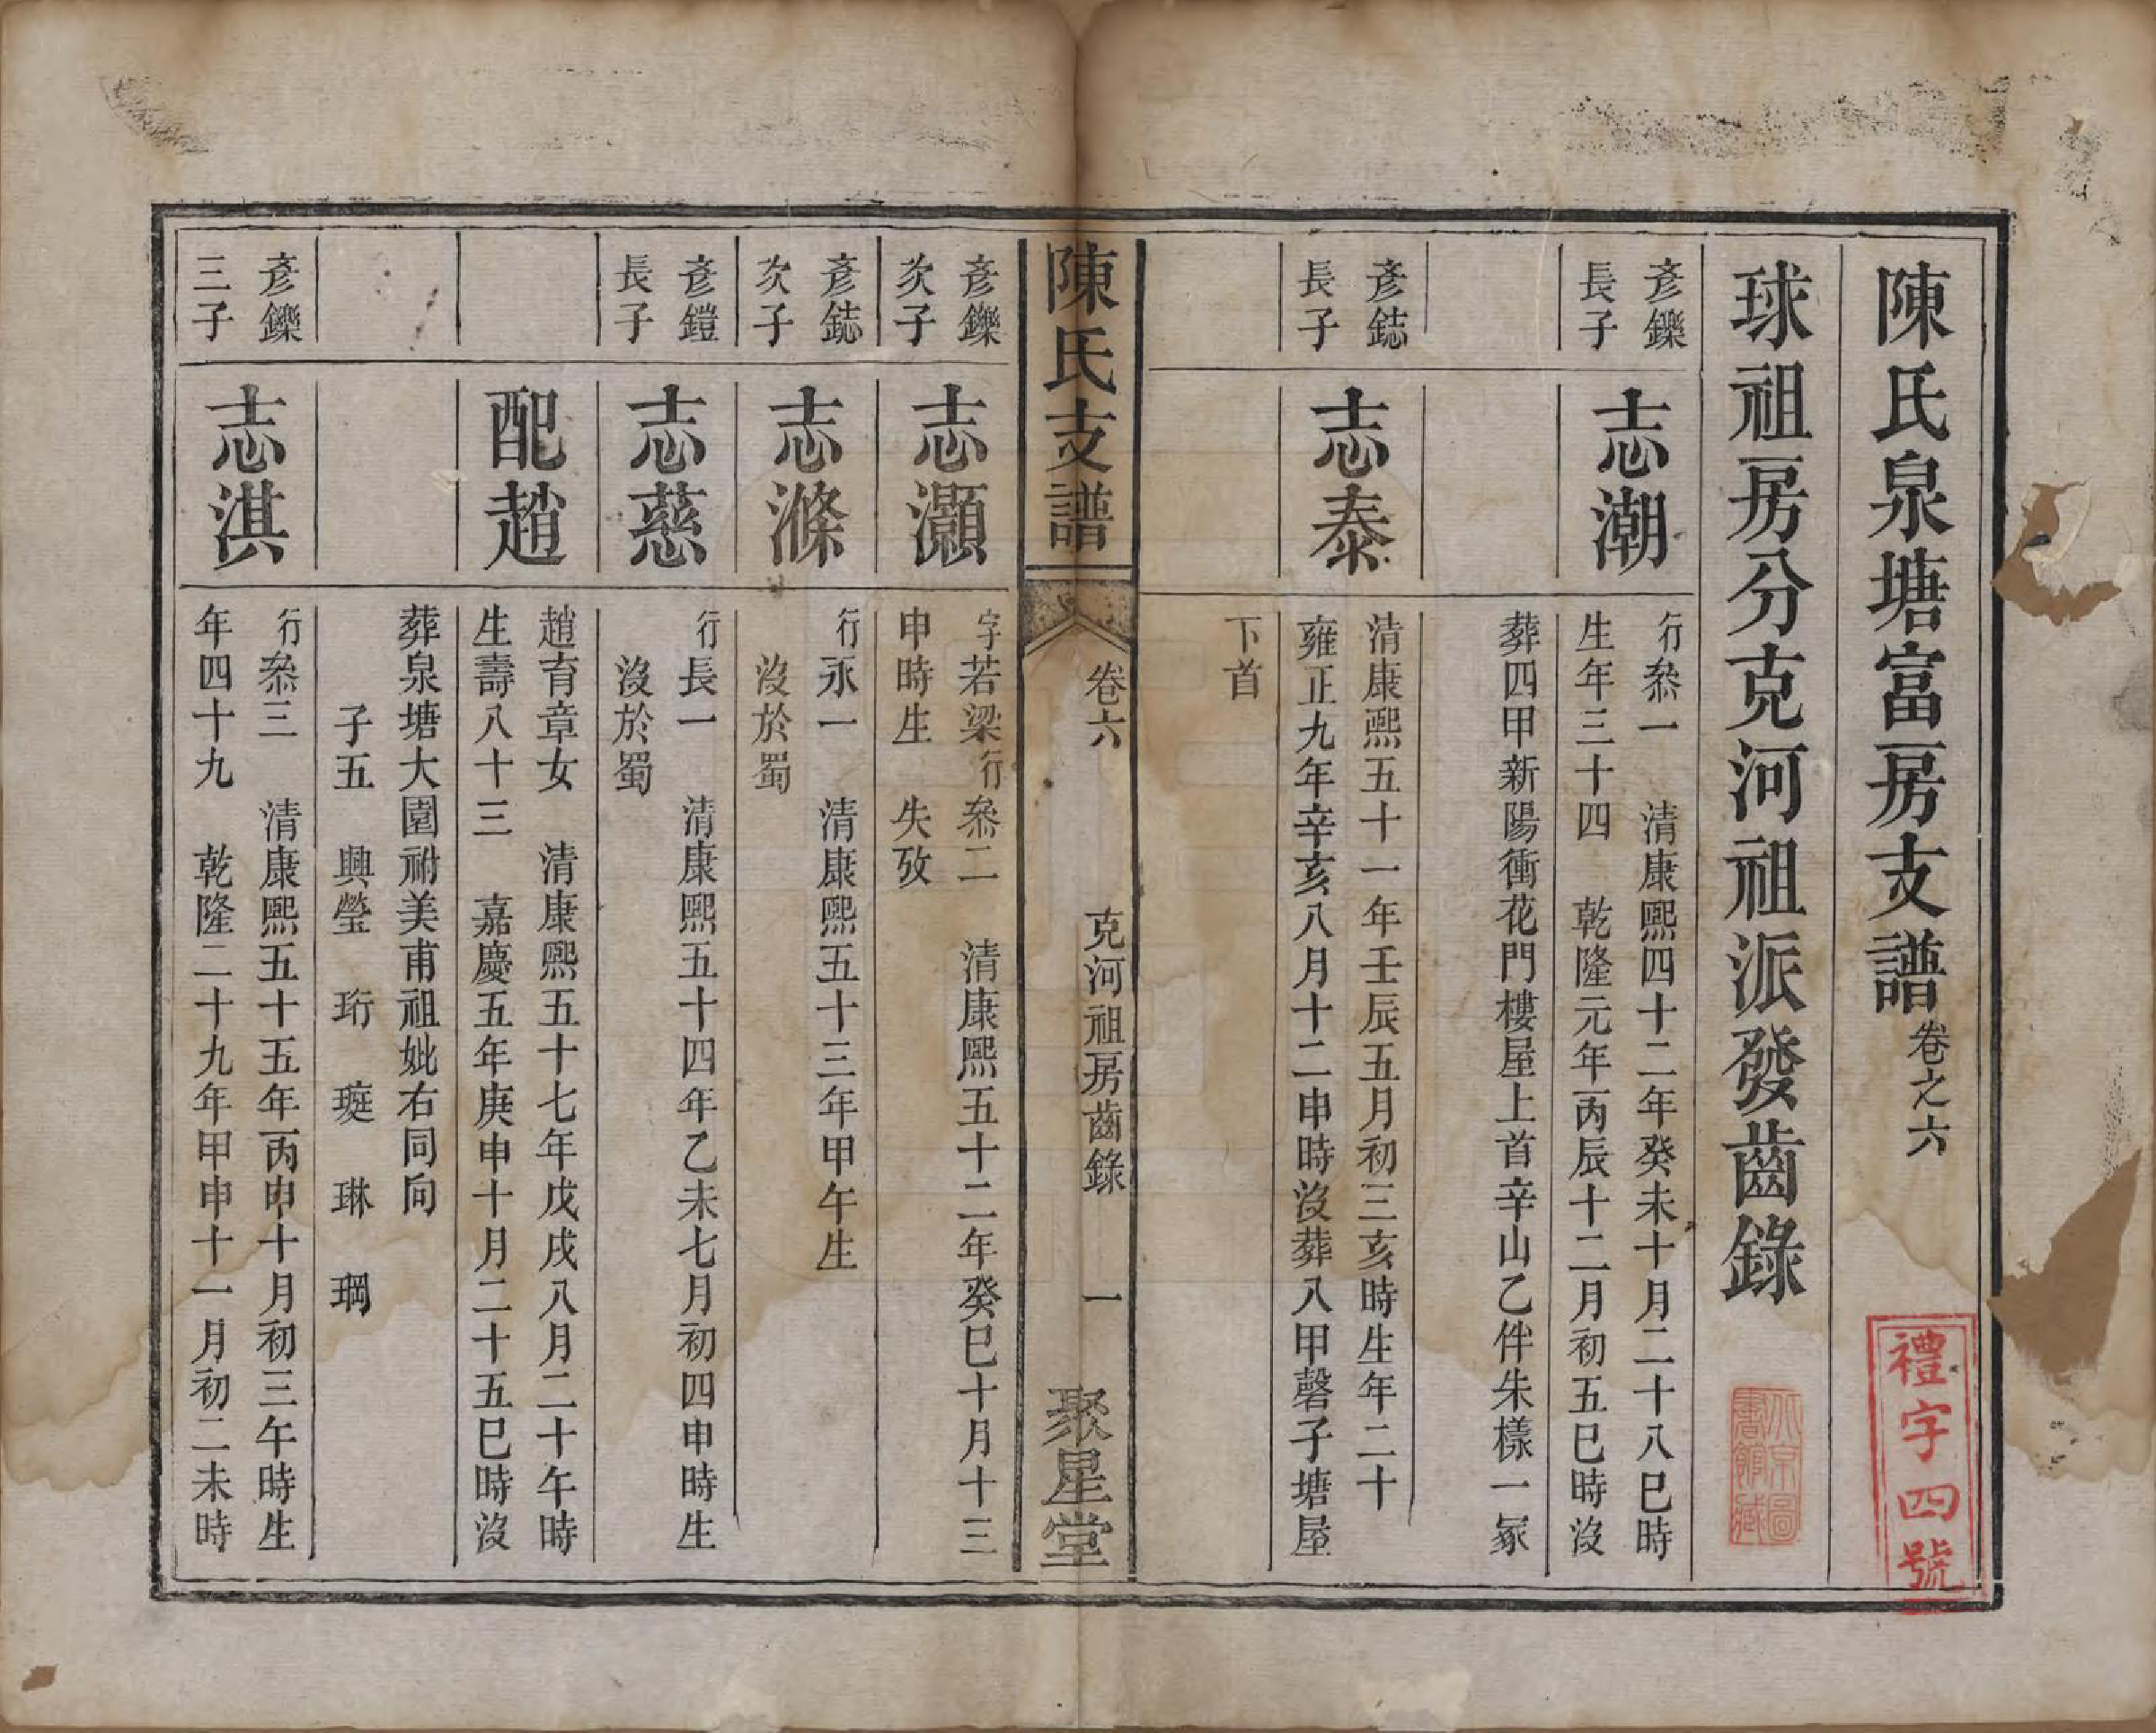 陳氏泉塘富房支譜卷之六
禮字四號
球祖房分克河祖派發齒錄
北京圖
書館藏
彥鑠
長子
志潮
行叅一　清康熙四十二年癸未十月二十八巳時
生年三十四　乾隆元年丙辰十二月初五巳時沒
葬四甲新陽衝花門樓屋上首辛山乙伴朱樣一冢
彥鋕
長子
志泰
清康熙五十一年壬辰五月初三亥時生年二十
雍正九年辛亥八月十二申時沒葬八甲磬子塘屋
下首
陳氏支譜
卷六
克河祖房齒錄
一
聚星堂
彥鑠
次子
志灝
字若梁行叅二　清康熙五十二年癸巳十月十三
申時生　失攷
彥鋕
次子
志滌
行永一　清康熙五十三年甲午生
沒於蜀
彥鎧
長子
志慈
行長一　清康熙五十四年乙未七月初四申時生
沒於蜀
配趙
趙育章女　清康熙五十七年戊戌八月二十午時
生壽八十三　嘉慶五年庚申十月二十五巳時沒
葬泉塘大園祔美甫祖妣右同向
子五　興瑩　珩　璇　琳　琱
彥鑠
三子
志淇
行叅三　清康熙五十五年丙申十月初三午時生
年四十九　乾隆二十九年甲申十一月初二未時